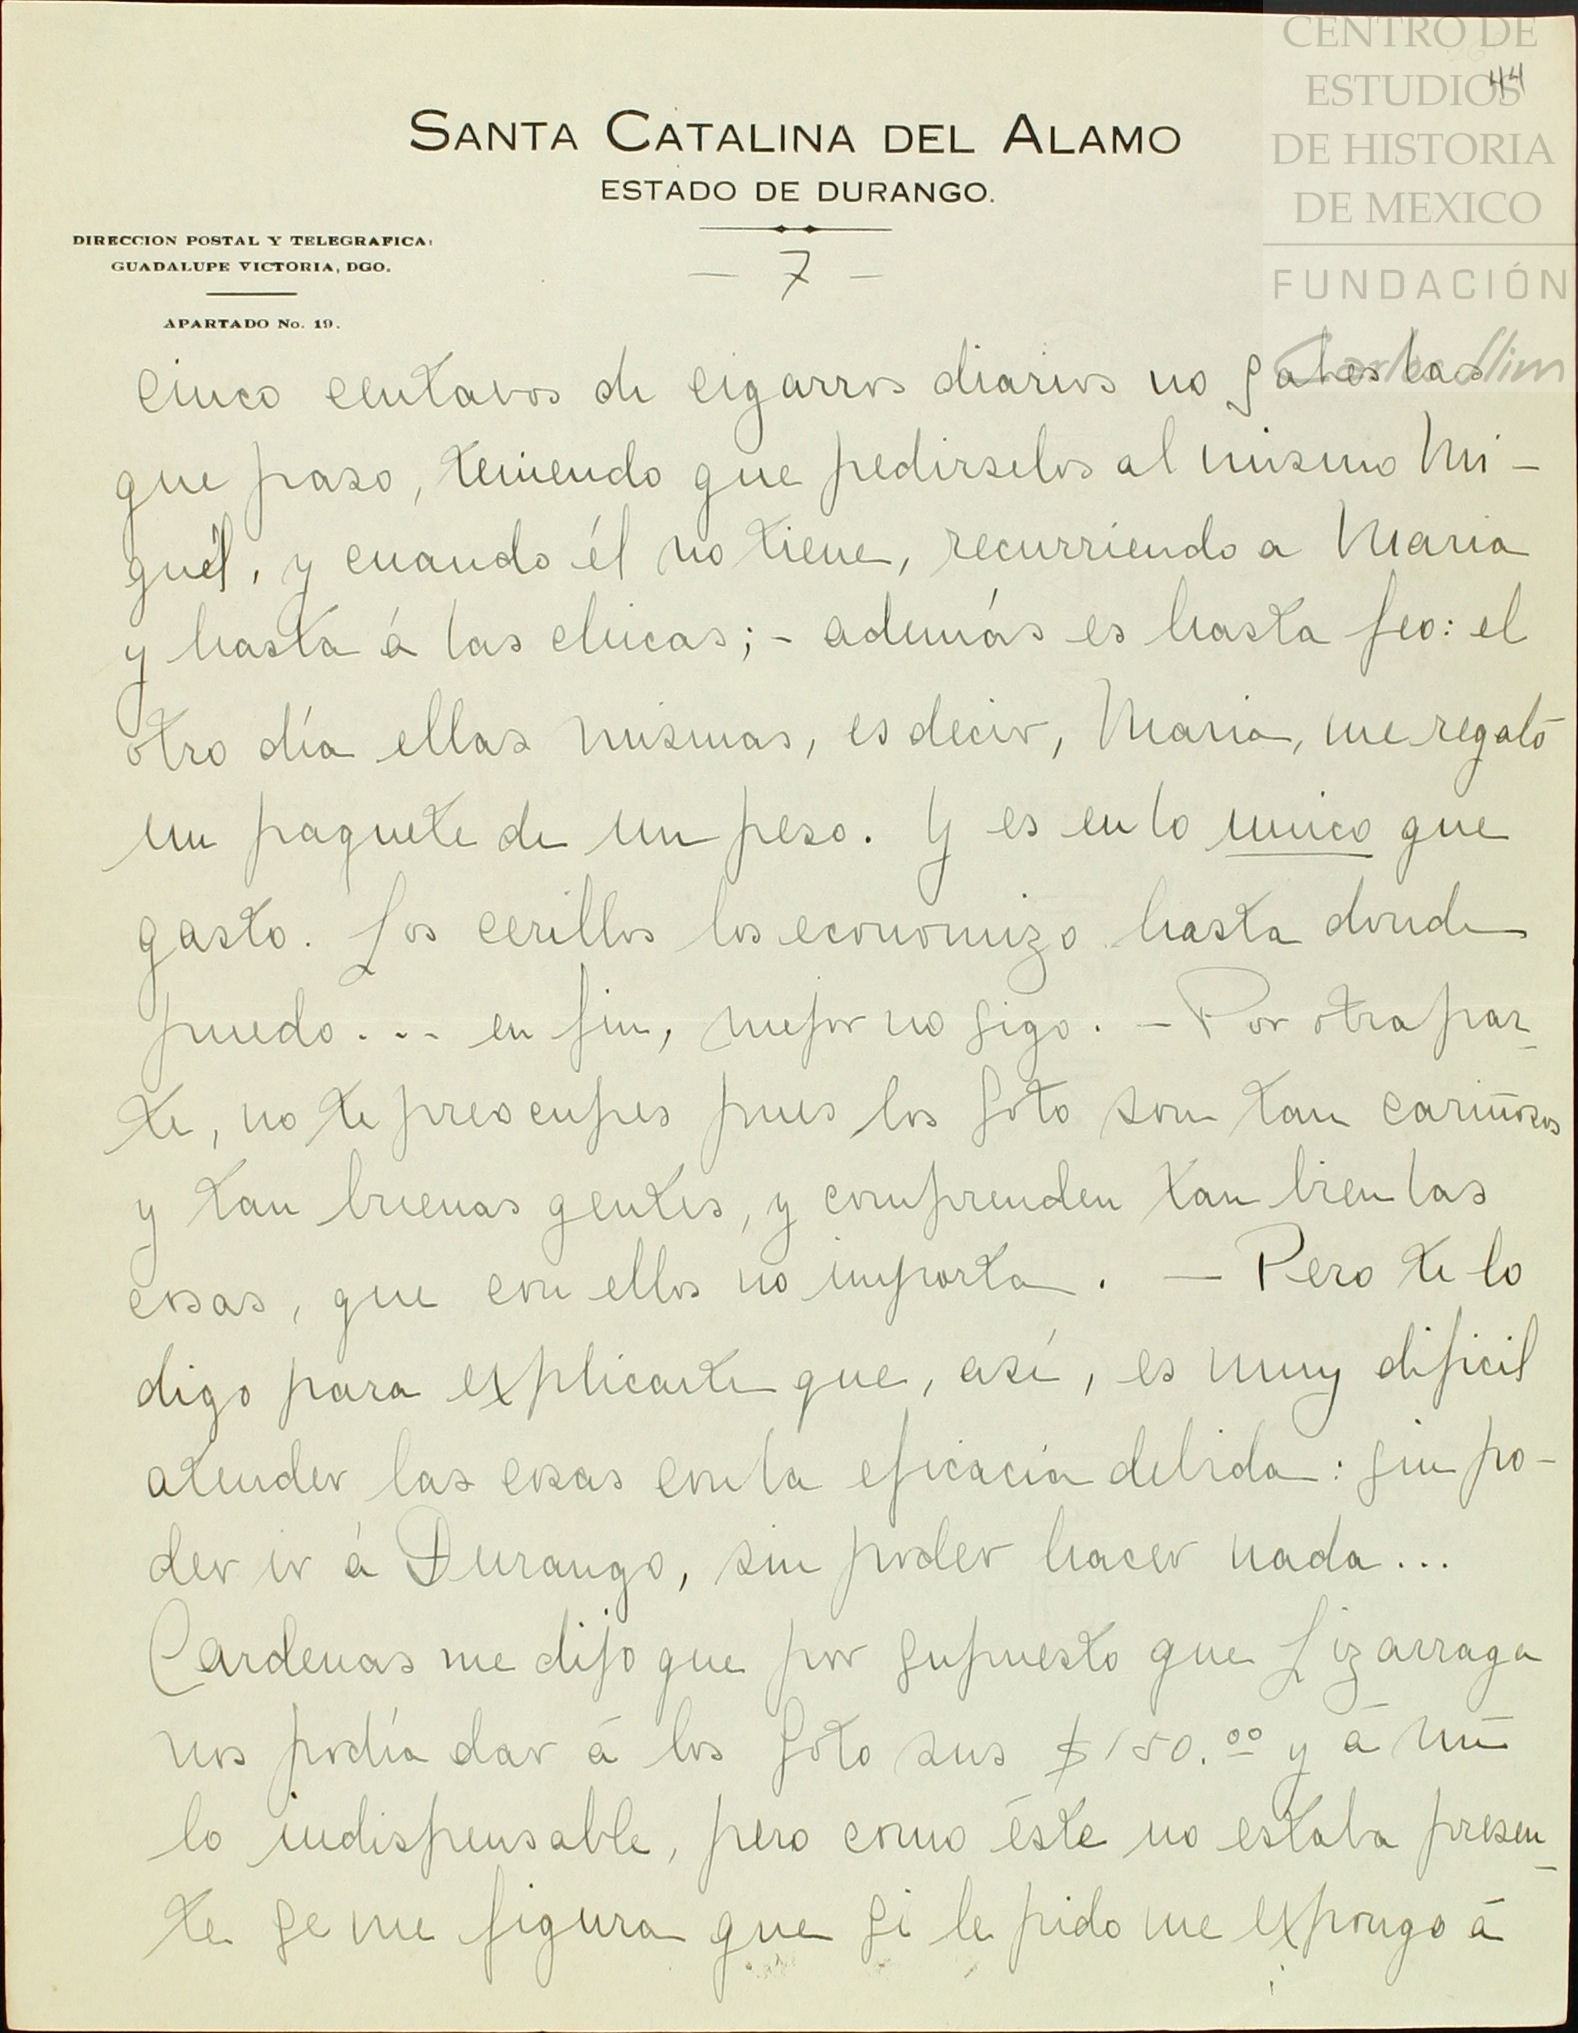 CENTRO DE
ESTUDIOS
DE HISTORIA
DE MEXICO
FUNDACIÓN
Carlos Slim
44
SANTA CATALINA DEL ALAMO
ESTADO DE DURANGO.
DIRECCION POSTAL Y TELEGRAFICA:
GUADALUPE VICTORIA, DGO.
APARTADO No. 19.
- 7 -
cinco centavos de cigarros diarios no sabes las
que paso, teniendo que pedirselos al mismo Mi-
guél, y cuando él no tiene, recurriendo a Maria
y hasta á las chicas; - además es hasta feo: el
otro día ellas mismas, es decir, Maria, me regaló
un paquete de un peso. Y es en lo unico que
gasto. Los cerillos los economizo hasta donde
puedo... en fin, mejor no sigo. - Por otra par-
te, no te preocupes pues los Soto son tan cariñosos
y tan buenas gentes, y comprenden tan bien las
cosas, que con ellos no importa. — Pero te lo
digo para explicarte que, así, es muy dificil
atender las cosas con la eficacia debida: sin po-
der ir á Durango, sin poder hacer nada...
Cardenas me dijo que por supuesto que Lizarraga
nos podía dar á los Soto sus $150.00 y á mí
lo indispensable, pero como éste no estaba presen-
te se me figura que si le pido me expongo á